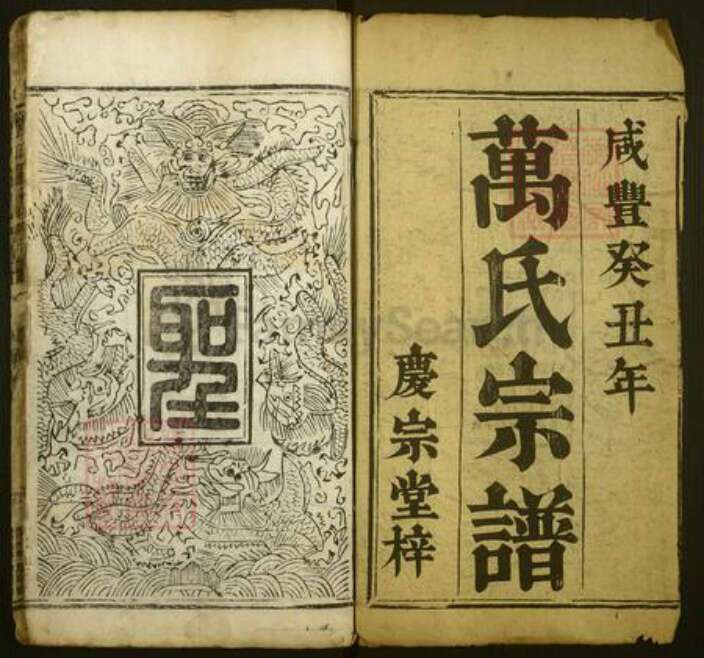 咸豐癸丑年
萬氏宗譜
慶宗堂梓
聖